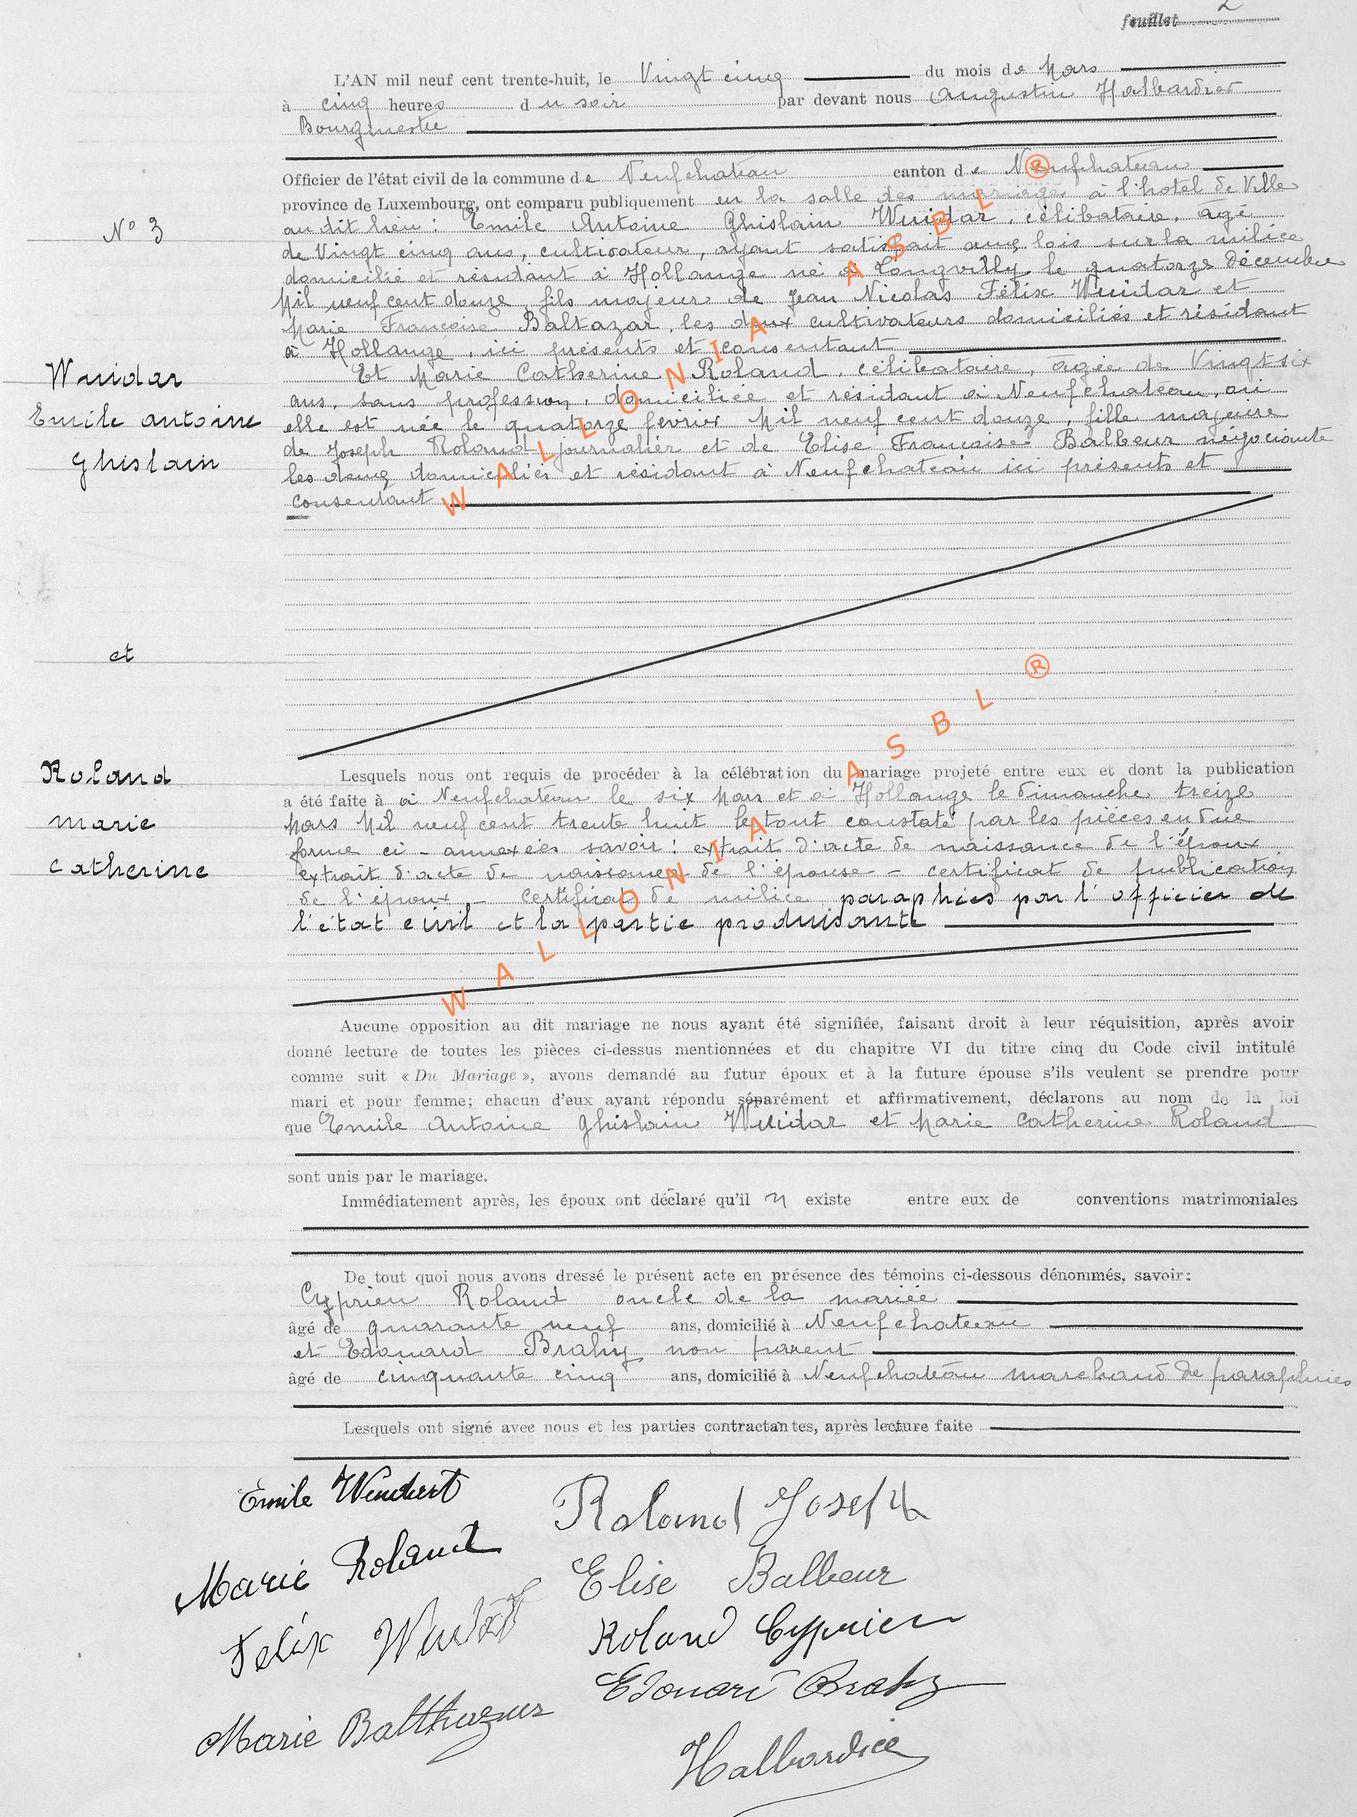 feuillet 2
L'AN mil neuf cent trente-huit, le Vingt cinq du mois de Mars
à cinq heures du soir par devant nous Augustin Halbardier
Bourgmestre
Officier de l'état civil de la commune de Neufchateau canton de Neufchateau
province de Luxembourg, ont comparu publiquement en la salle des mariages à l'hotel de Ville
au dit lieu : Emile Antoine Ghislain Wuidar, célibataire, âgé
de Vingt cinq ans, cultivateur, ayant satisfait aux lois sur la milice
domicilié et résidant à Hollange né à Longvilly le quatorze décembre
Mil neuf cent douze fils majeur de Jean Nicolas Félix Wuidar et
Marie Françoise Baltazar, les deux cultivateurs domiciliés et résidant
à Hollange, ici présents et consentant
Et Marie Catherine Roland, célibataire, âgée de Vingt six
ans, sans profession, domiciliée et résidant à Neufchateau, où
elle est née le quatorze février Mil neuf cent douze, fille majeure
de Joseph Roland journalier et de Elise Françoise Balbeur négociante
les deux domiciliés et résidant à Neufchateau ici présents et
consentant
N° 3
Wuidar
Emile antoine
Ghislain
et
Roland
marie
catherine
Lesquels nous ont requis de procéder à la célébration du mariage projeté entre eux et dont la publication
a été faite à à Neufchateau le six Mars et à Hollange le dimanche treize
Mars Mil neuf cent trente huit le tout constaté par les pièces en due
forme ci-annexées savoir : extrait d'acte de naissance de l'époux
extrait d'acte de naissance de l'épouse - certificat de publication
de l'époux - certificat de milice, paraphées par l'officier de
l'état civil et la partie produisante
Aucune opposition au dit mariage ne nous ayant été signifiée, faisant droit à leur réquisition, après avoir
donné lecture de toutes les pièces ci-dessus mentionnées et du chapitre VI du titre cinq du Code civil intitulé
comme suit « Du Mariage », avons demandé au futur époux et à la future épouse s'ils veulent se prendre pour
mari et pour femme; chacun d'eux ayant répondu séparément et affirmativement, déclarons au nom de la loi
que Emile Antoine Ghislain Wuidar et Marie Catherine Roland
sont unis par le mariage.
Immédiatement après, les époux ont déclaré qu'il n existe entre eux de conventions matrimoniales
De tout quoi nous avons dressé le présent acte en présence des témoins ci-dessous dénommés, savoir:
Cyprien Roland oncle de la mariée
âgé de quarante neuf ans, domicilié à Neufchateau
et Edouard Brahy non parent
âgé de cinquante cinq ans, domicilié à Neufchateau marchand de parapluies
Lesquels ont signé avec nous et les parties contractantes, après lecture faite
Emile Wuidart
Roland Joseph
Marie Roland
Elise Balbeur
Felix Wuidart
Roland Cyprien
Edouard Brahy
Marie Balthazar
Halbardier
WALLONIA ASBL ®
WALLONIA ASBL ®